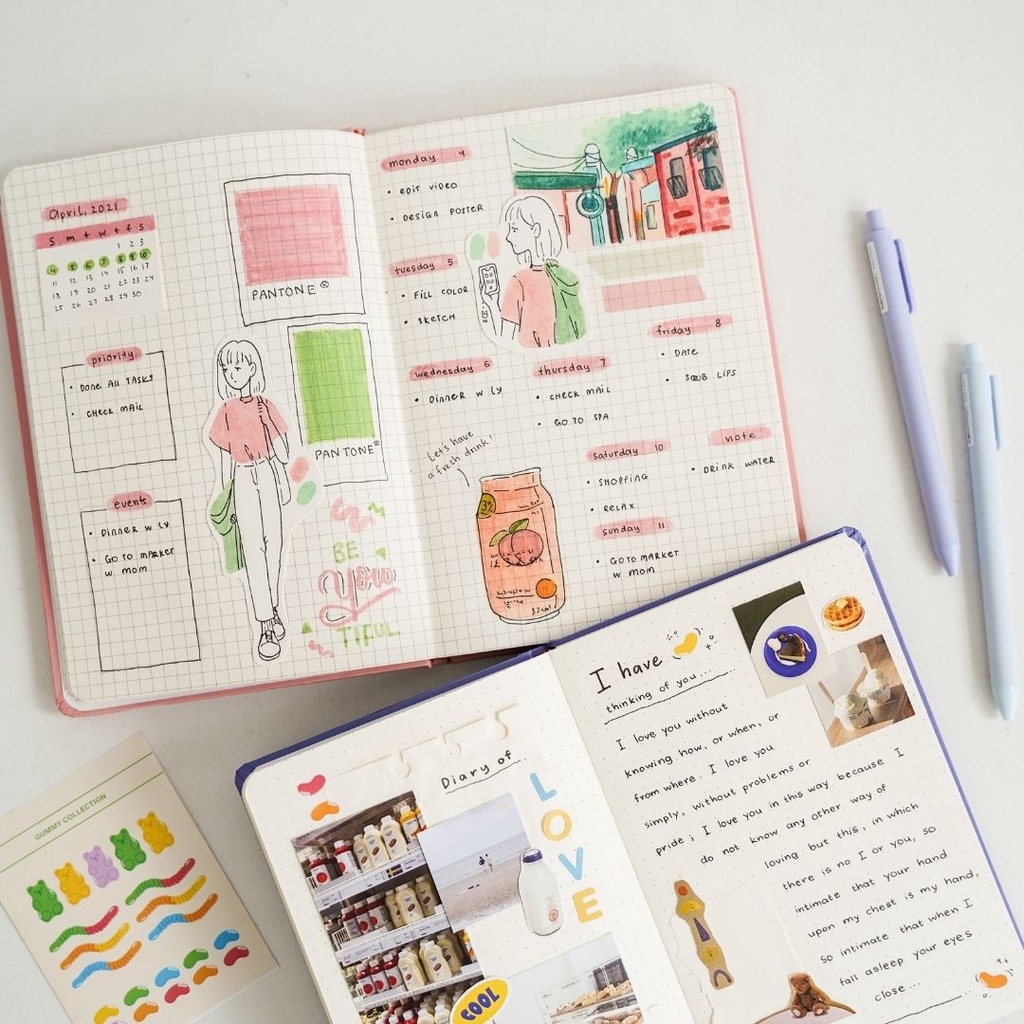 April, 2021
S m t w t f S
1 2 3
4 5 6 7 8 9 10
11 12 13 14 15 16 17
18 19 20 21 22 23 24
25 26 27 28 29 30
priority
• Done All TASKS
• CHECK MAIL
events
• DINNER W LY
• GO TO MARKET
W MOM
PANTONE®
PANTONE®
BE
You
TIFUL
monday 4
• EDIT VIDEO
• DESIGN POSTER
tuesday 5
• FILL COLOR
• SKETCH
wednesday 6
• DINNER W LY
thursday 7
• CHECK MAIL
• GO TO SPA
friday 8
• DATE
• SCUB LIPS
saturday 10
• SHOPPING
• RELAX
sunday 11
• GO TO MARKET
W MOM
note
• DRINK WATER
Let's have
a fresh drink!
3%
GUMMY COLLECTION
Diary of
LOVE
COOL
I have
thinking of you....
I love you without
knowing how, or when, or
from where. I love you
simply, without problems or
pride; I love you in this way because I
do not know any other way of
loving but this, in which
there is no I or you, so
intimate that your hand
upon my chest is my hand,
so intimate that when I
fall asleep your eyes
close...